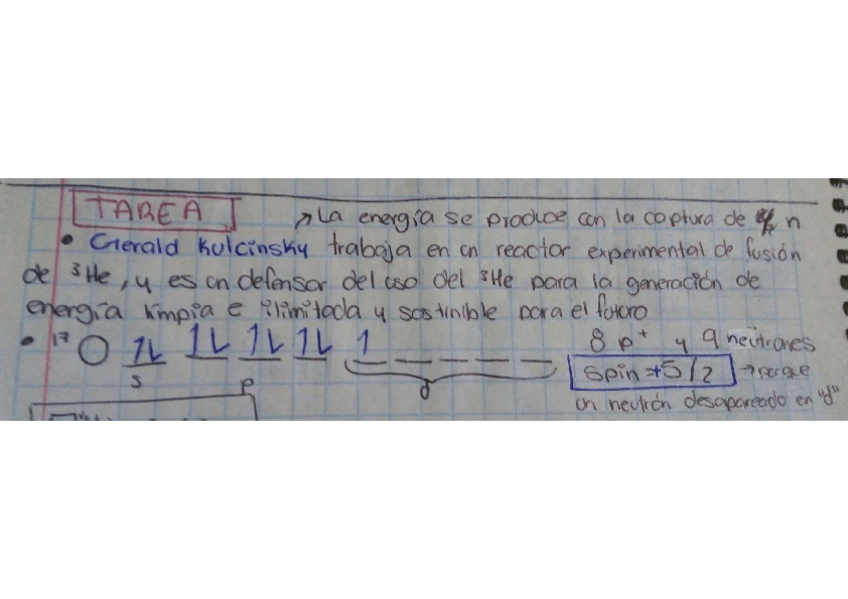 TAREA
↗ La energía se produce con la captura de n
• Gerald Kulcinsky trabaja en un reactor experimental de fusión
de ³He, y es un defensor del uso del ³He para la generación de
energía limpia e ilimitada y sostinible para el futuro
• ¹⁷O 1L 1L 1L 1L 1 _ _ _ _ 8 p⁺ y 9 neutrones
s p d Spin = +5/2 → porque
un neutrón desapareado en "d"